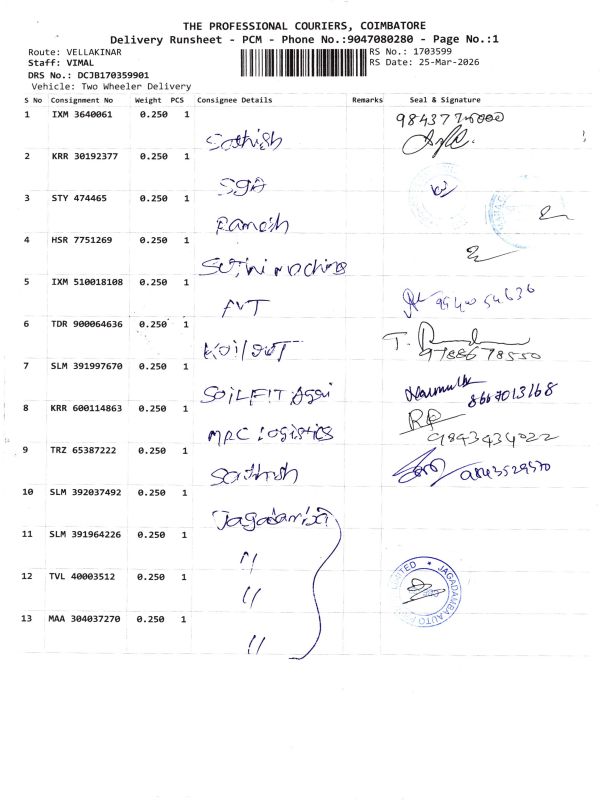 THE PROFESSIONAL COURIERS, COIMBATORE
Delivery Runsheet - PCM - Phone No.:9047080280 - Page No.:1
Route: VELLAKINAR
RS No.: 1703599
Staff: VIMAL
RS Date: 25-Mar-2026
DRS No.: DCJB170359901
Vehicle: Two Wheeler Delivery
S No Consignment No Weight PCS Consignee Details Remarks Seal & Signature
1 IXM 3640061 0.250 1
Sathish
2 KRR 30192377 0.250 1
SGA
3 STY 474465 0.250 1
Ramesh
4 HSR 7751269 0.250 1
5 IXM 510018108 0.250 1
6 TDR 900064636 0.250 1
9788678550
7 SLM 391997670 0.250 1
8667013168
8 KRR 600114863 0.250 1
MRC Logistics 9843434022
9 TRZ 65387222 0.250 1
Sathish
10 SLM 392037492 0.250 1
Jagadamba
11 SLM 391964226 0.250 1
"
12 TVL 40003512 0.250 1
"
13 MAA 304037270 0.250 1
"
JAGADAMBA AUTO
LIMITED